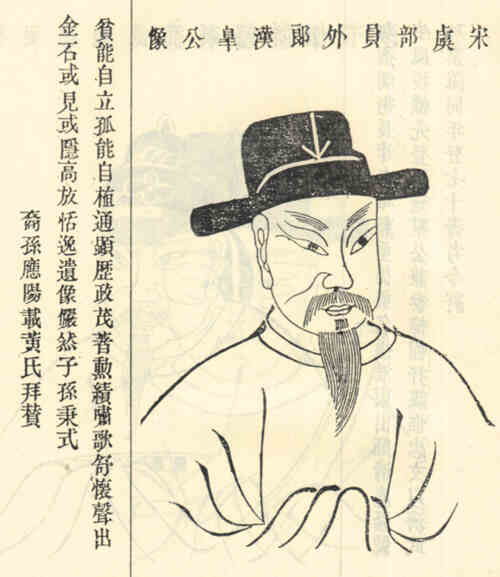 宋虞部員外郎漢皐公像
貧能自立孤能自植通顯歷政茂著勳績嘯歌舒懷聲出
金石或見或隱高放恬逸遺像儼然子孫秉式
裔孫應陽載黃氏拜贊